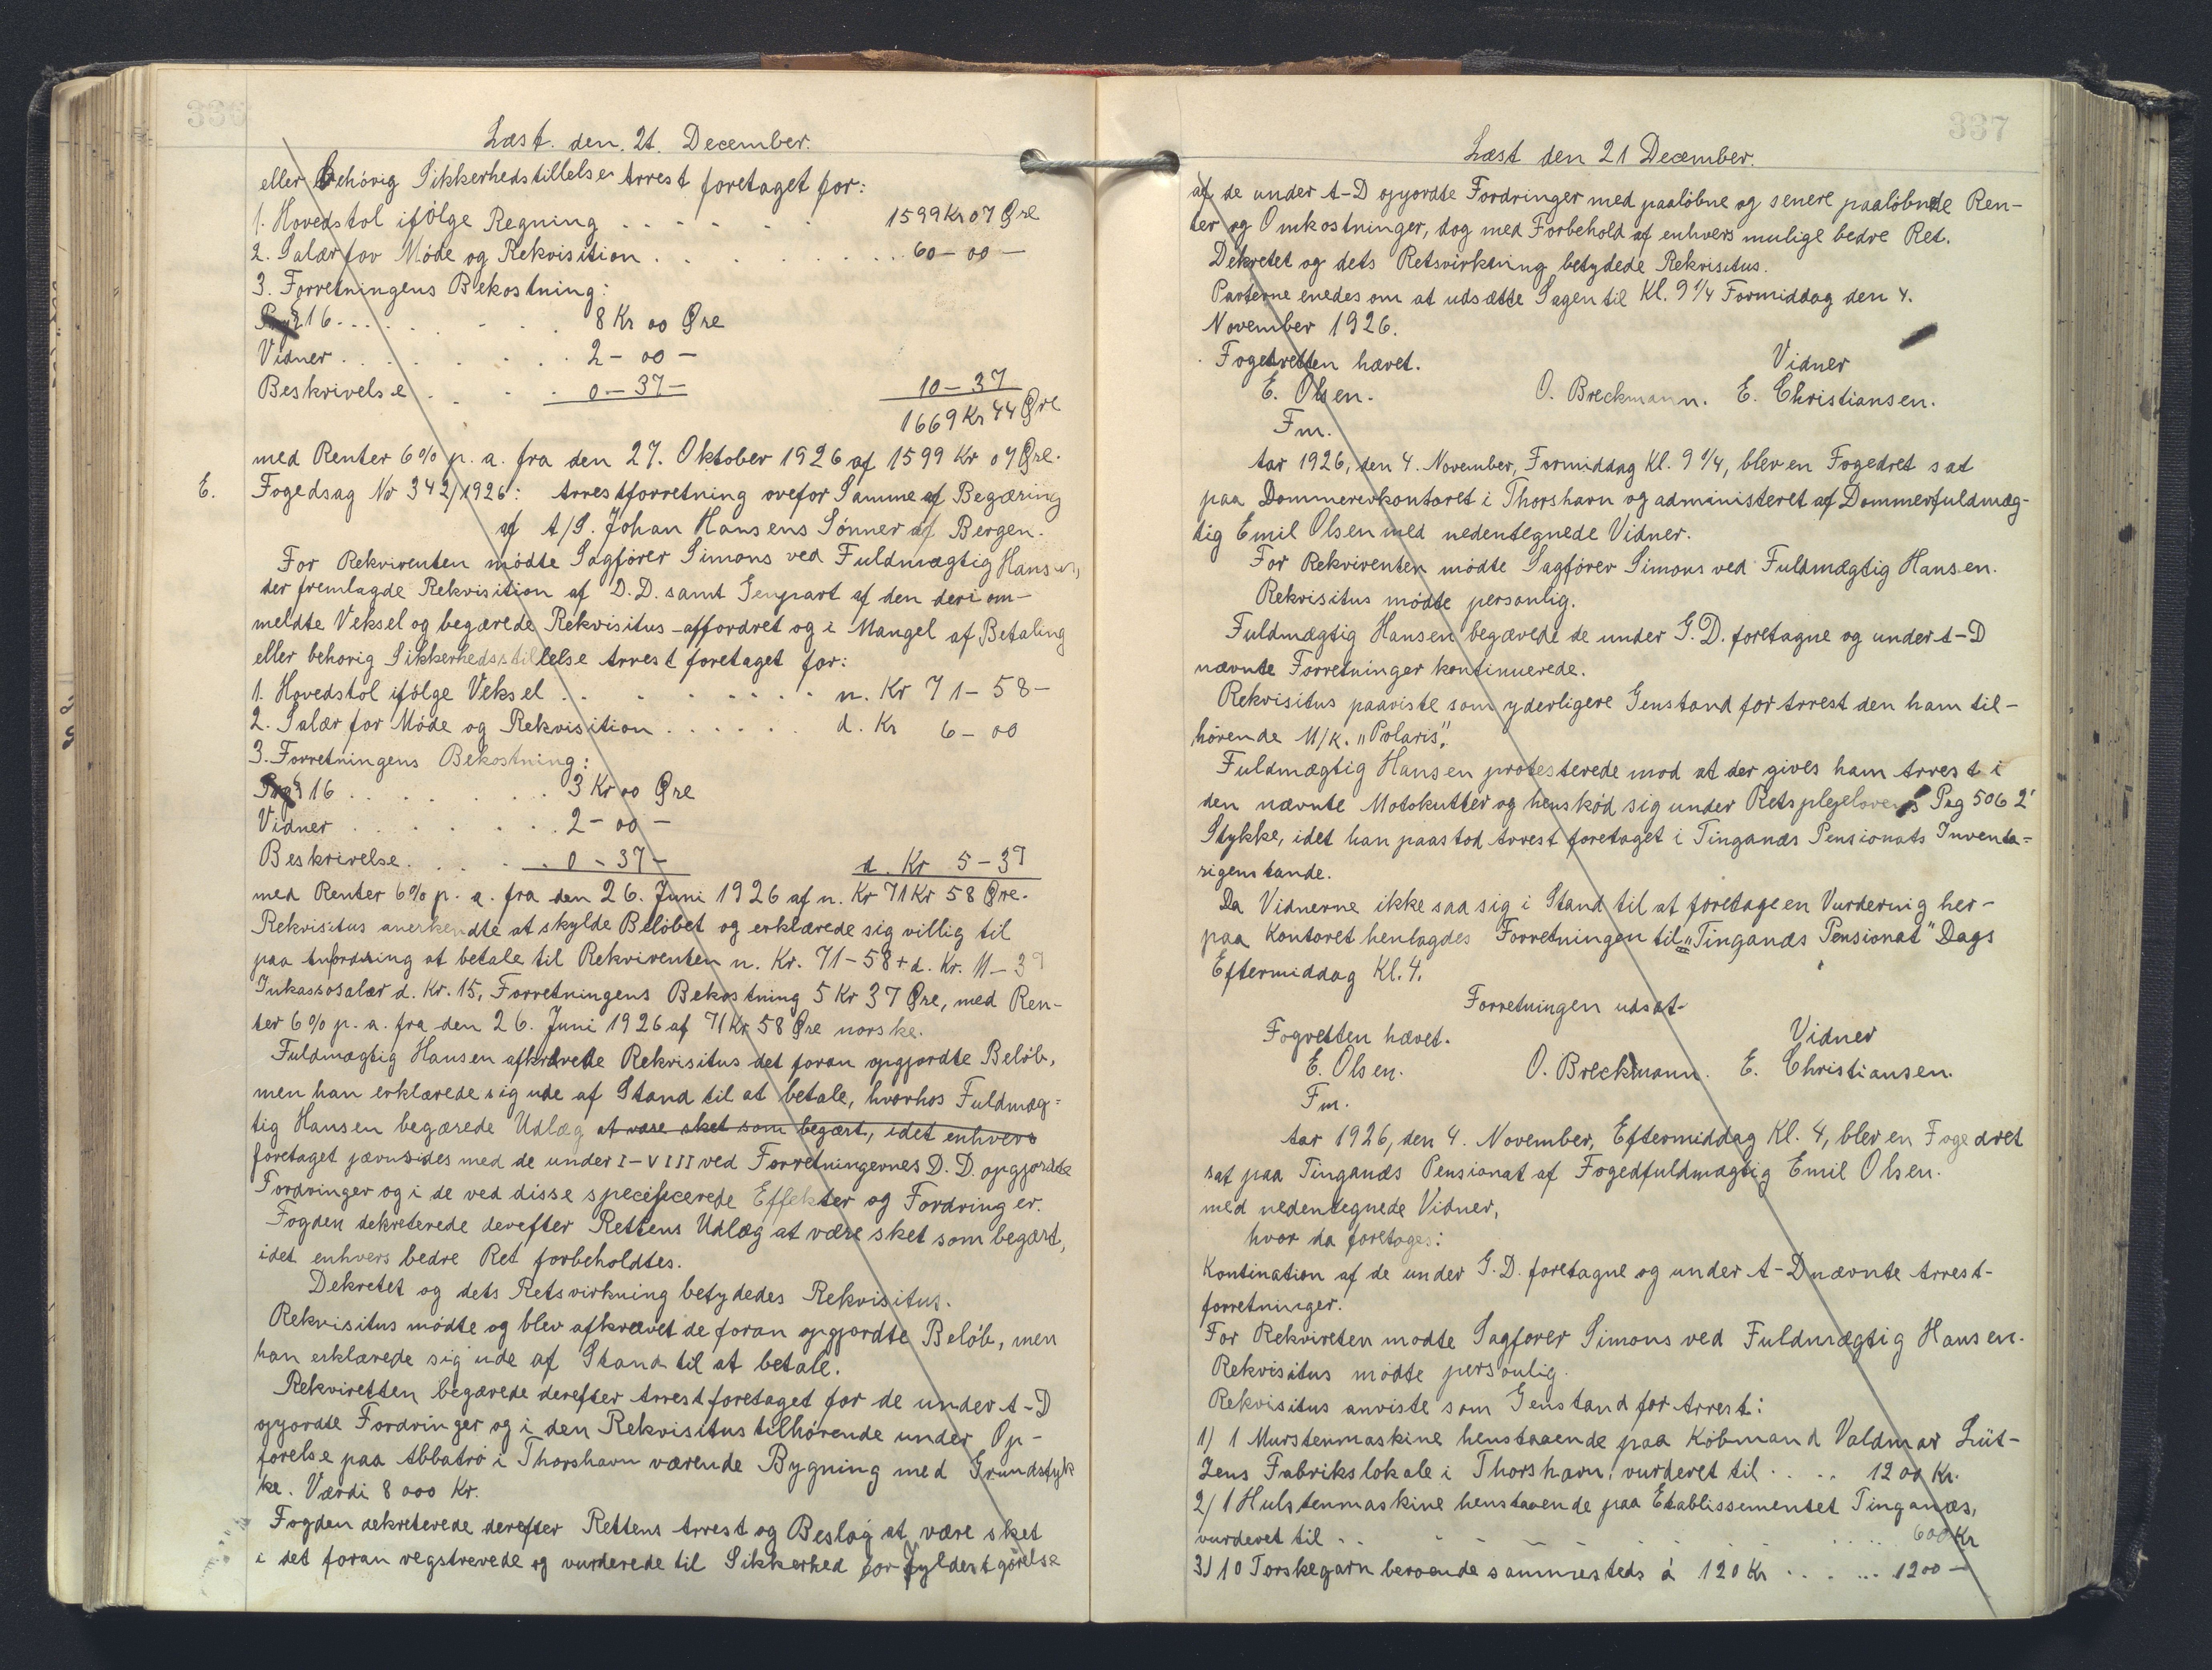 336
Læst. den. 21. December.
eller behörig Sikkerhedstillelse Arrest foretaget for:
1. Hovedstol ifölge Regning . . . . . . 1599 Kr 07 Øre
2. Salær for Möde og Rekvisition . . . . . . . 60 - 00 -
3. Forretningens Bekostning:
§ 16 . . . . . . . 8 Kr 00 Øre
Vidner . . . . . . 2 - 00 -
Beskrivelse . . . . 0 - 37 - 10 - 37
1669 Kr 44 Øre
med Renter 6% p. a. fra den 27. Oktober 1926 af 1599 Kr 07 Øre.
E. Fogedsag No 342/1926: Arrestforretning ovefor Samme af Begæring
af A/S. Johan Hansens Sönner af Bergen.
For Rekvirenten mödte Sagförer Simons ved Fuldmægtig Hansen,
der fremlagde Rekvisition af D.D. samt Genpart af den deri om-
meldte Veksel og begærede Rekvisitus affordret og i Mangel af Betaling
eller behorig Sikkerhedsstillelse Arrest foretaget for:
1. Hovedstol ifölge Veksel . . . . . . . . n. Kr 71 - 58 -
2. Salær for Möde og Rekvisition . . . . . . d. Kr 6 - 00
3. Forretningens Bekostning:
§ 16 . . . . . . . 3 Kr 00 Øre
Vidner . . . . . . . 2 - 00 -
Beskrivelse . . . . . 0 - 37 - d. Kr 5 - 37
med Renter 6% p. a. fra den 26. Juni 1926 af n. Kr 71 Kr 58 Øre.
Rekvisitus anerkendte at skylde Belöbet og erklærede sig villig til
paa Anfordring at betale til Rekvirenten n. Kr. 71 - 58 + d. Kr. 11 - 37
Inkassosalær d. Kr. 15, Forretningens Bekostning 5 Kr 37 Øre, med Ren-
ter 6% p. a. fra den 26. Juni 1926 af 71 Kr 58 Øre norske.
Fuldmægtig Hansen afkrævede Rekvisitus det foran opgjordte Belöb,
men han erklærede sig ude af Stand til at betale, hvorhos Fuldmæg=
tig Hansen begærede Udlæg at være sket som begært, idet enhvers
foretaget jævnsides med de under I-VIII ved Forretningernes D.D. opgjordte
Fordringer og i de ved disse specificerede Effekter og Fordringer.
Fogden dekreterede derefter Rettens Udlæg at være sket som begært,
idet enhvers bedre Ret forbeholdtes.
Dekretet og dets Retsvirkning betydedes Rekvisitus.
Rekvisitus mödte og blev afkrævet de foran opgjordte Belöb, men
han erklærede sig ude af Stand til at betale.
Rekviretten begærede derefter Arrest foretaget for de under A-D
opjordte Fordringer og i den Rekvisitus tilhörende under Op-
förelse paa Abbatrö i Thorshavn værende Bygning med Grundstyk
ke. Værdi 8000 Kr.
Fogden dekreterede derefter Rettens Arrest og Beslag at være sket
i det foran regstrerede og vurderede til Sikkerhed for Fyldestgörelse
337
Læst den 21 December.
af de under A-D opjordte Fordringer med paalöbne og senere paalöbnde Ren-
ter og Omkostninger, dog med Forbehold af enhvers mulige bedre Ret.
Dekretet og dets Retsvirkning betydede Rekvisitus.
Parterne enedes om at udsætte Sagen til Kl. 9 1/4 Formiddag den 4.
November 1926.
Fogedretten hævet. Vidner
E. Olsen. O. Breckmann. E. Christiansen.
Fm.
Aar 1926, den 4. November, Formiddag Kl. 9 1/4, blev en Fogedret sat
paa Dommererkontoret i Thorshavn og administeret af Dommerfuldmæg-
tig Emil Olsen med nedentegnede Vidner.
For Rekvirenten mödte Sagförer Simons ved Fuldmægtig Hansen.
Rekvisitus mödte personlig.
Fuldmægtig Hansen begærede de under G.D. foretagne og under A-D
nævnte Forretninger kontinuerede.
Rekvisitus paaviste som yderligere Genstand for Arrest den ham til-
hörende M/K. "Polaris".
Fuldmægtig Hansen protesterede mod at der gives ham Arrest i
den nævnte Motokutter og henskód sig under Retsplejelovens Pag 506 2'
Stykke, idet han paastod Arrest foretaget i Tinganæs Pensionats Inventa=
rigenstande.
Da Vidnerne ikke saa sig i Stand til at foretage en Vurdering her-
paa Kontoret henlagdes Forretningen til "Tinganæs Pensionat" Dags
Eftermiddag Kl. 4.
Forretningen udsat.
Fogretten hævet. Vidner
E. Olsen. O. Breckmann. E. Christiansen.
Fm.
Aar 1926, den 4. November, Eftermiddag Kl. 4, blev en Fogedret
sat paa Tinganæs Pensionat af Fogedfuldmægtig Emil Olsen.
med nedentegnede Vidner,
hvor da foretoges:
Kontination af de under G.D. foretagne og under A-D nævnte Arrest-
forretninger.
For Rekvireten modte Sagforer Simons ved Fuldmægtig Hansen.
Rekvisitus modte personlig.
Rekvisitus anviste som Genstand for Arrest:
1) 1 Murstenmaskine henstaaende paa Köbmand Valdmar Lüt-
zens Fabrikslokale i Thorshavn, vurderet til . . . . 1200 Kr.
2) 1 Hulstenmaskine henstaaende paa Etablissementet Tinganæs,
vurderet til . . . . . . . . 600 Kr
3) 10 Torskegarn beroende sammesteds á 120 Kr . . . . . . 1200 -